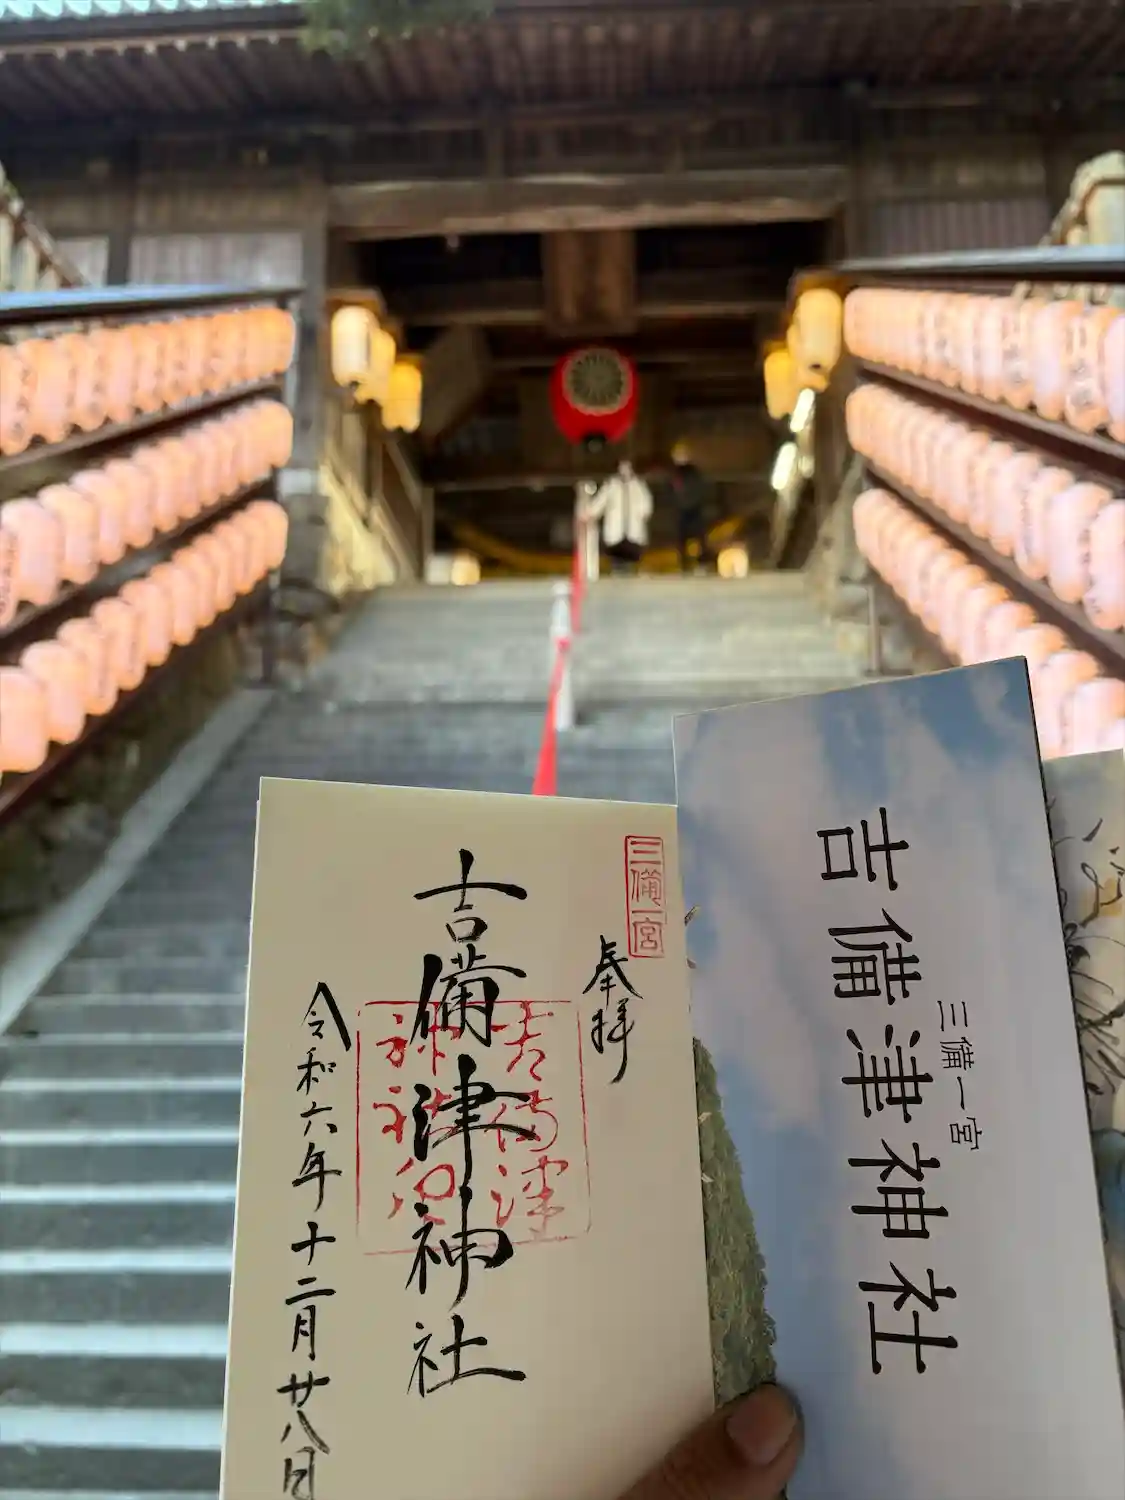 三備一宮
奉拝
吉備津神社
吉備津
神社印
令和六年十二月廿八日
三備一宮
吉備津神社